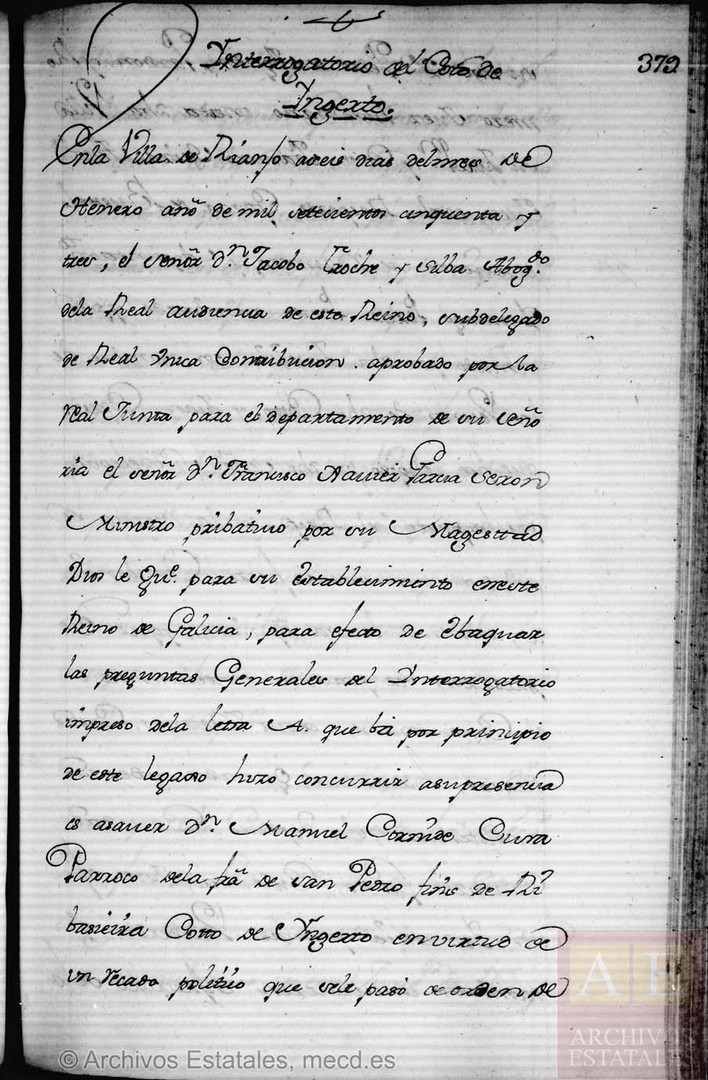 Ynterrogatorio del Coto de
379
Yngerto.
Enla Villa de Rianjo aseis dias delmes de
Henero año de mil setecientos cinquenta y
tres, el señor Dn. Jacobo Troche y Silba Abogdo.
dela Real audiencia de este Reino, subdelegado
de Real Vnica Contribucion. aprobado por la
real Junta para el departamento de su seño
ria el señor Dn. Francisco Xavier Garcia Seron
Ministro pribatiuo por su Magesttad
Dios le Gue. para su establecimiento eneste
Reino de Galicia, para efecto de Ebaquar
las preguntas Generales del Ynterrogatorio
impreso dela letra A. que ba por principio
de este legaxo hizo concurrir asupresencia
es asauer Dn. Manuel Cornide Cura
Parroco dela fra. de san Pedro fins de Ri
basieira Cotto de Yngerto envirtud de
un recado politico que sele pasó de orden de
© Archivos Estatales, mecd.es
AE
ARCHIVOS
ESTATALES